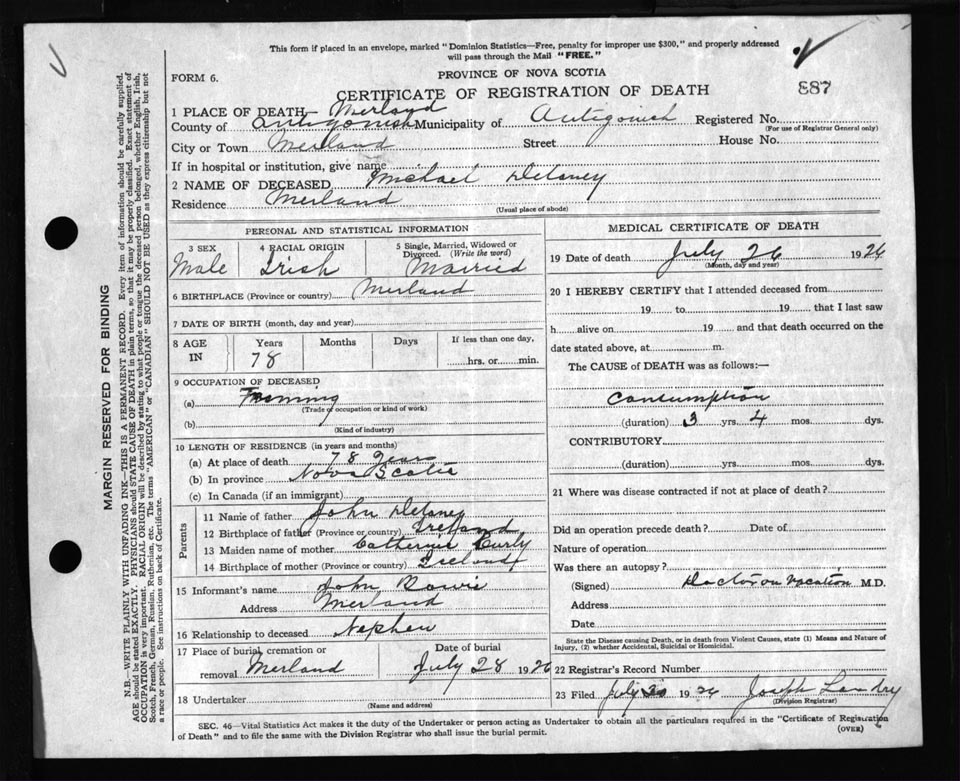 This form if placed in an envelope, marked "Dominion Statistics—Free, penalty for improper use $300," and properly addressed
will pass through the Mail "FREE."
FORM 6.
PROVINCE OF NOVA SCOTIA
887
CERTIFICATE OF REGISTRATION OF DEATH
1 PLACE OF DEATH— Merland
County of Antigonish Municipality of Antigonish Registered No.
(For use of Registrar General only)
City or Town Merland Street House No.
If in hospital or institution, give name
2 NAME OF DECEASED Michael Delaney
Residence Merland
(Usual place of abode)
PERSONAL AND STATISTICAL INFORMATION
3 SEX 4 RACIAL ORIGIN 5 Single, Married, Widowed or
Divorced. (Write the word)
Male Irish Married
6 BIRTHPLACE (Province or country) Merland
7 DATE OF BIRTH (month, day and year)
8 AGE Years Months Days If less than one day,
IN 78 hrs. or min.
9 OCCUPATION OF DECEASED
(a) Farming
(Trade of occupation or kind of work)
(b)
(Kind of industry)
10 LENGTH OF RESIDENCE (in years and months)
(a) At place of death 78 years
(b) In province Nova Scotia
(c) In Canada (if an immigrant)
Parents
11 Name of father John Delaney
12 Birthplace of father (Province or country) Ireland
13 Maiden name of mother Catherine Curly
14 Birthplace of mother (Province or country) Ireland
15 Informant's name John
Address Merland
16 Relationship to deceased Nephew
17 Place of burial, cremation or Date of burial
removal Merland July 28 1926
18 Undertaker
(Name and address)
MEDICAL CERTIFICATE OF DEATH
19 Date of death July 26 1926
(Month, day and year)
20 I HEREBY CERTIFY that I attended deceased from
19 to 19 that I last saw
h alive on 19 and that death occurred on the
date stated above, at m.
The CAUSE of DEATH was as follows:—
Consumption
(duration) 3 yrs. 4 mos. dys.
CONTRIBUTORY
(duration) yrs. mos. dys.
21 Where was disease contracted if not at place of death?
Did an operation precede death? Date of
Nature of operation
Was there an autopsy?
(Signed) Doctor on Vacation M.D.
Address
Date
State the Disease causing Death, or in death from Violent Causes, state (1) Means and Nature of
Injury, (2) whether Accidental, Suicidal or Homicidal.
22 Registrar's Record Number
23 Filed July 30 1926 Joseph Landry
(Division Registrar)
SEC. 46—Vital Statistics Act makes it the duty of the Undertaker or person acting as Undertaker to obtain all the particulars required in the "Certificate of Registration
of Death" and to file the same with the Division Registrar who shall issue the burial permit.
(OVER)
MARGIN RESERVED FOR BINDING
N.B.—WRITE PLAINLY WITH UNFADING INK—THIS IS A PERMANENT RECORD. Every item of information should be carefully supplied.
AGE should be stated EXACTLY. PHYSICIANS should STATE CAUSE OF DEATH in plain terms, so that it may be properly classified. Exact statement of
OCCUPATION is very important. RACIAL ORIGIN will be described by stating to what people or tongue the deceased person belonged, whether English, Irish,
Scotch, French, German, Russian, Ruthenian, etc. The terms "AMERICAN" or "CANADIAN" SHOULD NOT BE USED as they express citizenship but not
a race or people. See instructions on back of Certificate.